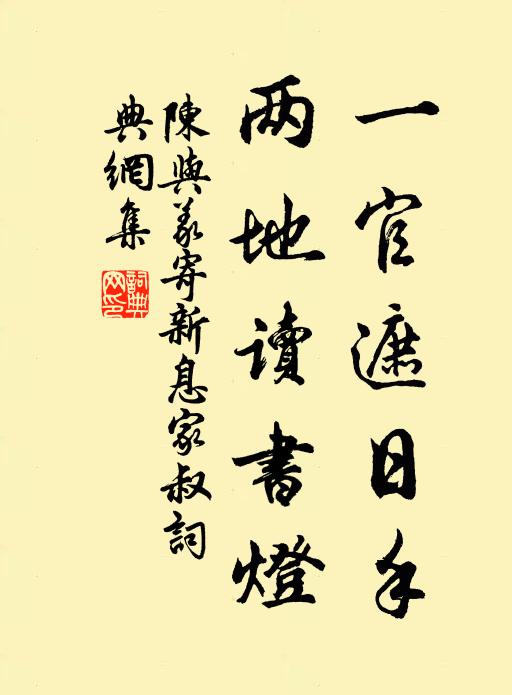 一官遮日手
兩地讀書燈
陳與義寄新息家叔詞
典網集
詞典
網印